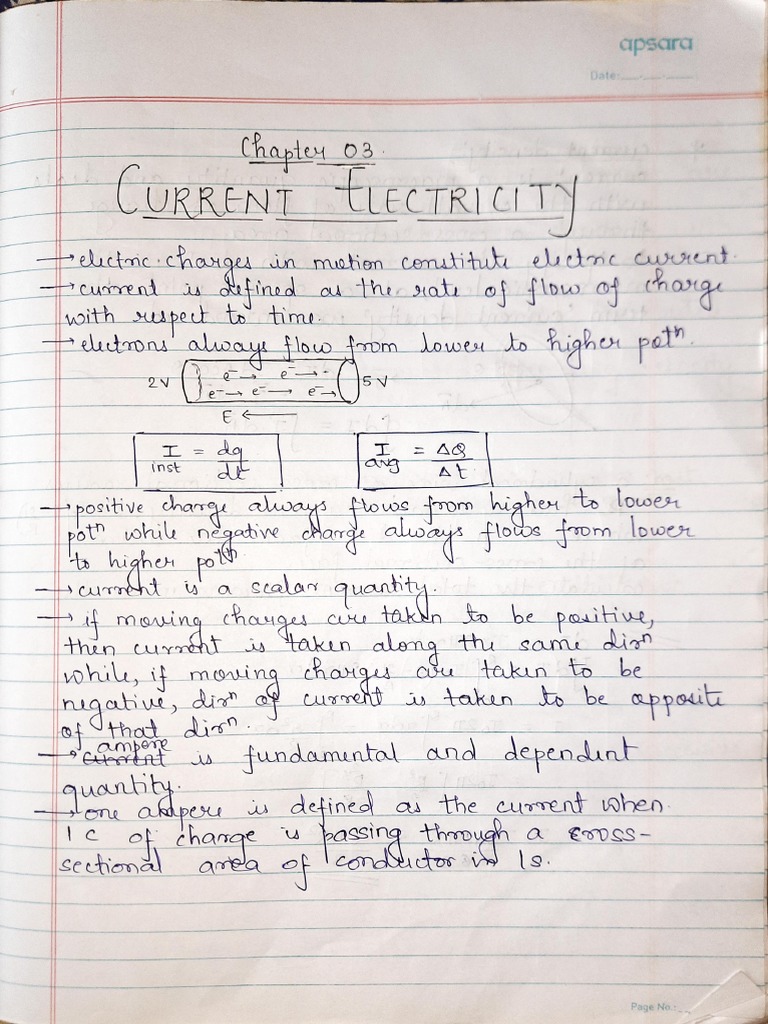 apsara
Date:
Chapter 03.
CURRENT ELECTRICITY
→ electric charges in motion constitute electric current.
→ current is defined as the rate of flow of charge
with respect to time.
→ electrons always flow from lower to higher potⁿ.
2V e⁻→ e⁻→ e⁻→ e⁻→ e⁻→ 5V
E ←
I inst = dq/dt I avg = ΔQ/Δt
→ positive charge always flows from higher to lower
potⁿ while negative charge always flows from lower
to higher potⁿ.
→ current is a scalar quantity.
→ if moving charges are taken to be positive,
then current is taken along the same dirⁿ
while, if moving charges are taken to be
negative, dirⁿ of current is taken to be opposite
of that dirⁿ.
→ ampere is fundamental and dependent
quantity.
→ one ampere is defined as the current when
1 C of charge is passing through a cross-
sectional area of conductor in 1s.
Page No.: